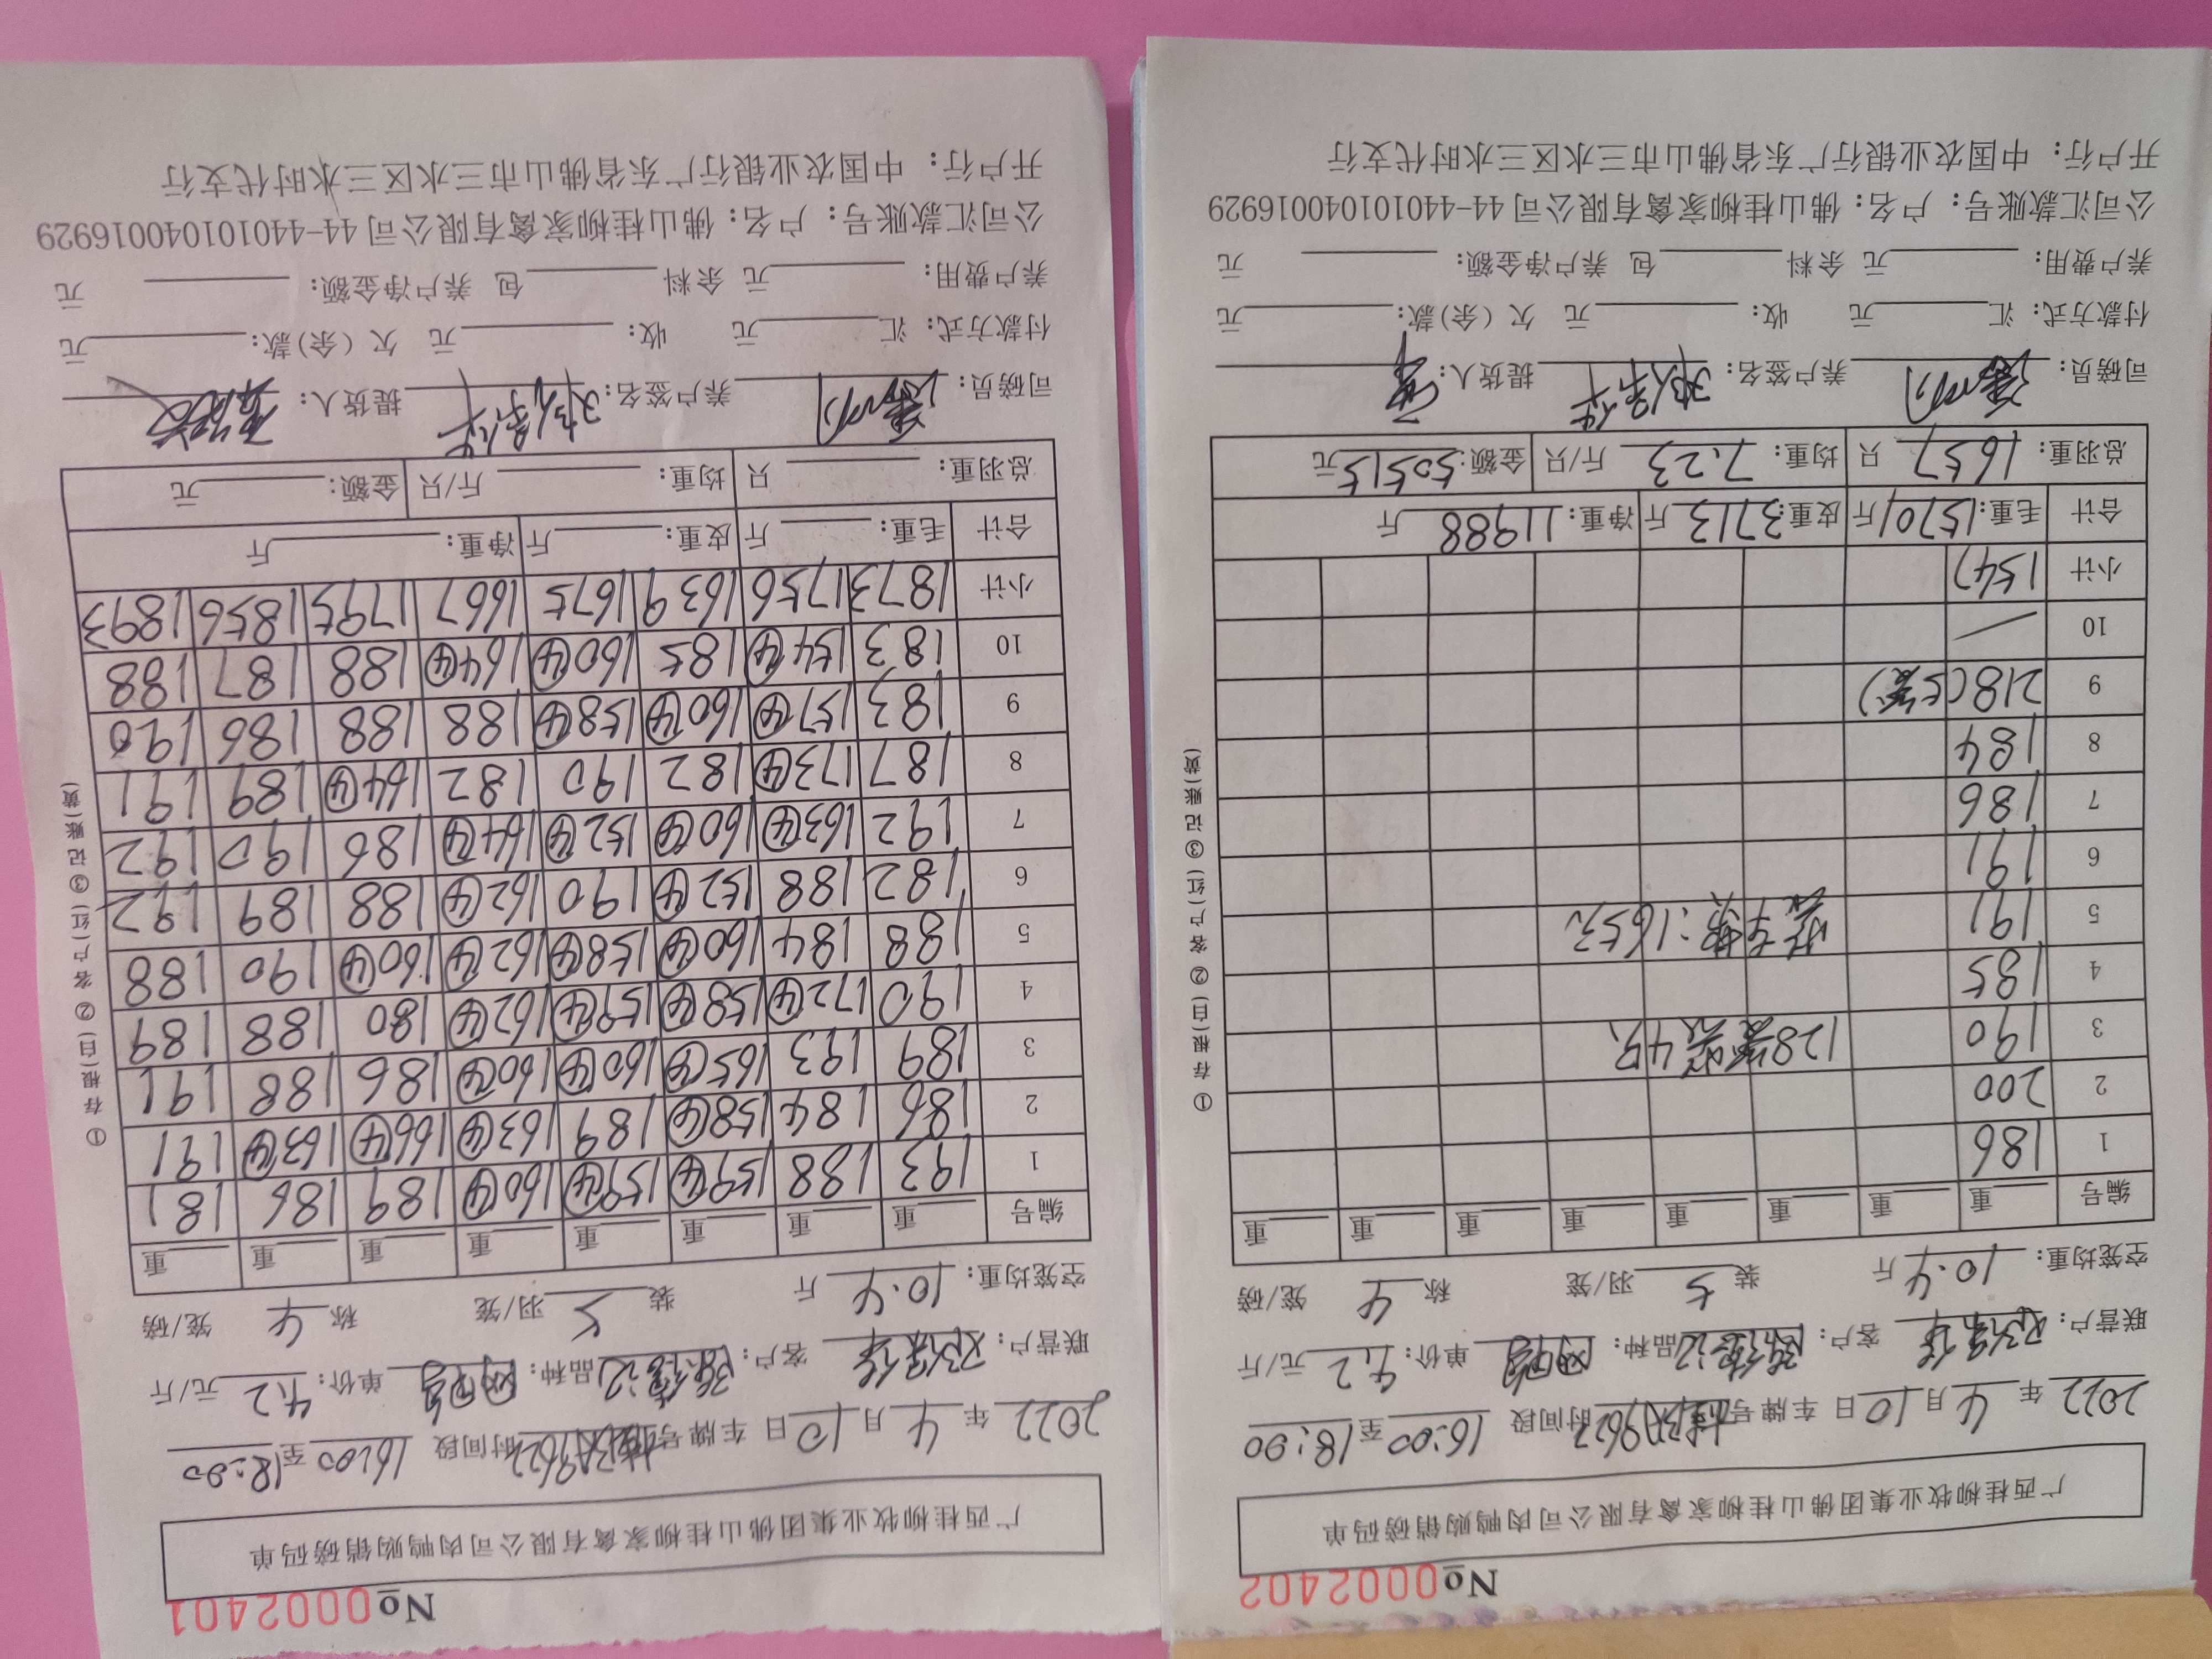 No0002401
广西桂柳牧业集团佛山桂柳家禽有限公司肉鸭购销磅码单
2022年4月10日 车牌号 时间段 16:00至18:00
联营户: 客户: 品种: 单价: 4.2 元/斤
空笼均重: 10.4 斤 装 5 羽/笼 称 4 笼/磅
编号 重 重 重 重 重 重 重 重
1 193 188 159④ 159④ 160④ 189 186 181
2 186 184 158④ 189 163④ 166④ 163④ 191
3 189 193 165④ 160④ 160④ 186 188 191
4 190 172④ 158④ 159④ 162④ 180 188 189
5 188 184 160④ 158④ 162④ 160④ 190 188
6 182 188 152④ 190 162④ 188 189 192
7 192 163④ 160④ 152④ 164④ 186 190 192
8 187 173④ 182 190 182 164④ 189 191
9 183 157④ 160④ 158④ 188 188 186 190
10 183 154④ 185 160④ 164④ 188 187 188
小计 1873 1756 1639 1675 1667 1795 1856 1893
合计 毛重: 斤 皮重: 斤 净重: 斤
总羽重: 只 均重: 斤/只 金额: 元
司磅员: 养户签名: 提货人:
付款方式: 汇 元 收: 元 欠(余)款: 元
养户费用: 元 余料 包 养户净金额: 元
公司汇款账号: 户名: 佛山桂柳家禽有限公司44-440101040016929
开户行: 中国农业银行广东省佛山市三水区三水时代支行
①存根(白) ②客户(红) ③记账(黄)
No0002402
广西桂柳牧业集团佛山桂柳家禽有限公司肉鸭购销磅码单
2022年4月10日 车牌号 时间段 16:00至18:00
联营户: 客户: 品种: 单价: 4.2 元/斤
空笼均重: 10.4 斤 装 5 羽/笼 称 4 笼/磅
编号 重 重 重 重 重 重 重 重
1 186
2 200
3 190 128笼装4只
4 185
5 191
6 191
7 186
8 184
9 218(5笼)
10
小计 1547
合计 毛重: 15701 斤 皮重: 3713 斤 净重: 11988 斤
总羽重: 1657 只 均重: 7.23 斤/只 金额: 50515 元
司磅员: 养户签名: 提货人:
付款方式: 汇 元 收: 元 欠(余)款: 元
养户费用: 元 余料 包 养户净金额: 元
公司汇款账号: 户名: 佛山桂柳家禽有限公司44-440101040016929
开户行: 中国农业银行广东省佛山市三水区三水时代支行
①存根(白) ②客户(红) ③记账(黄)